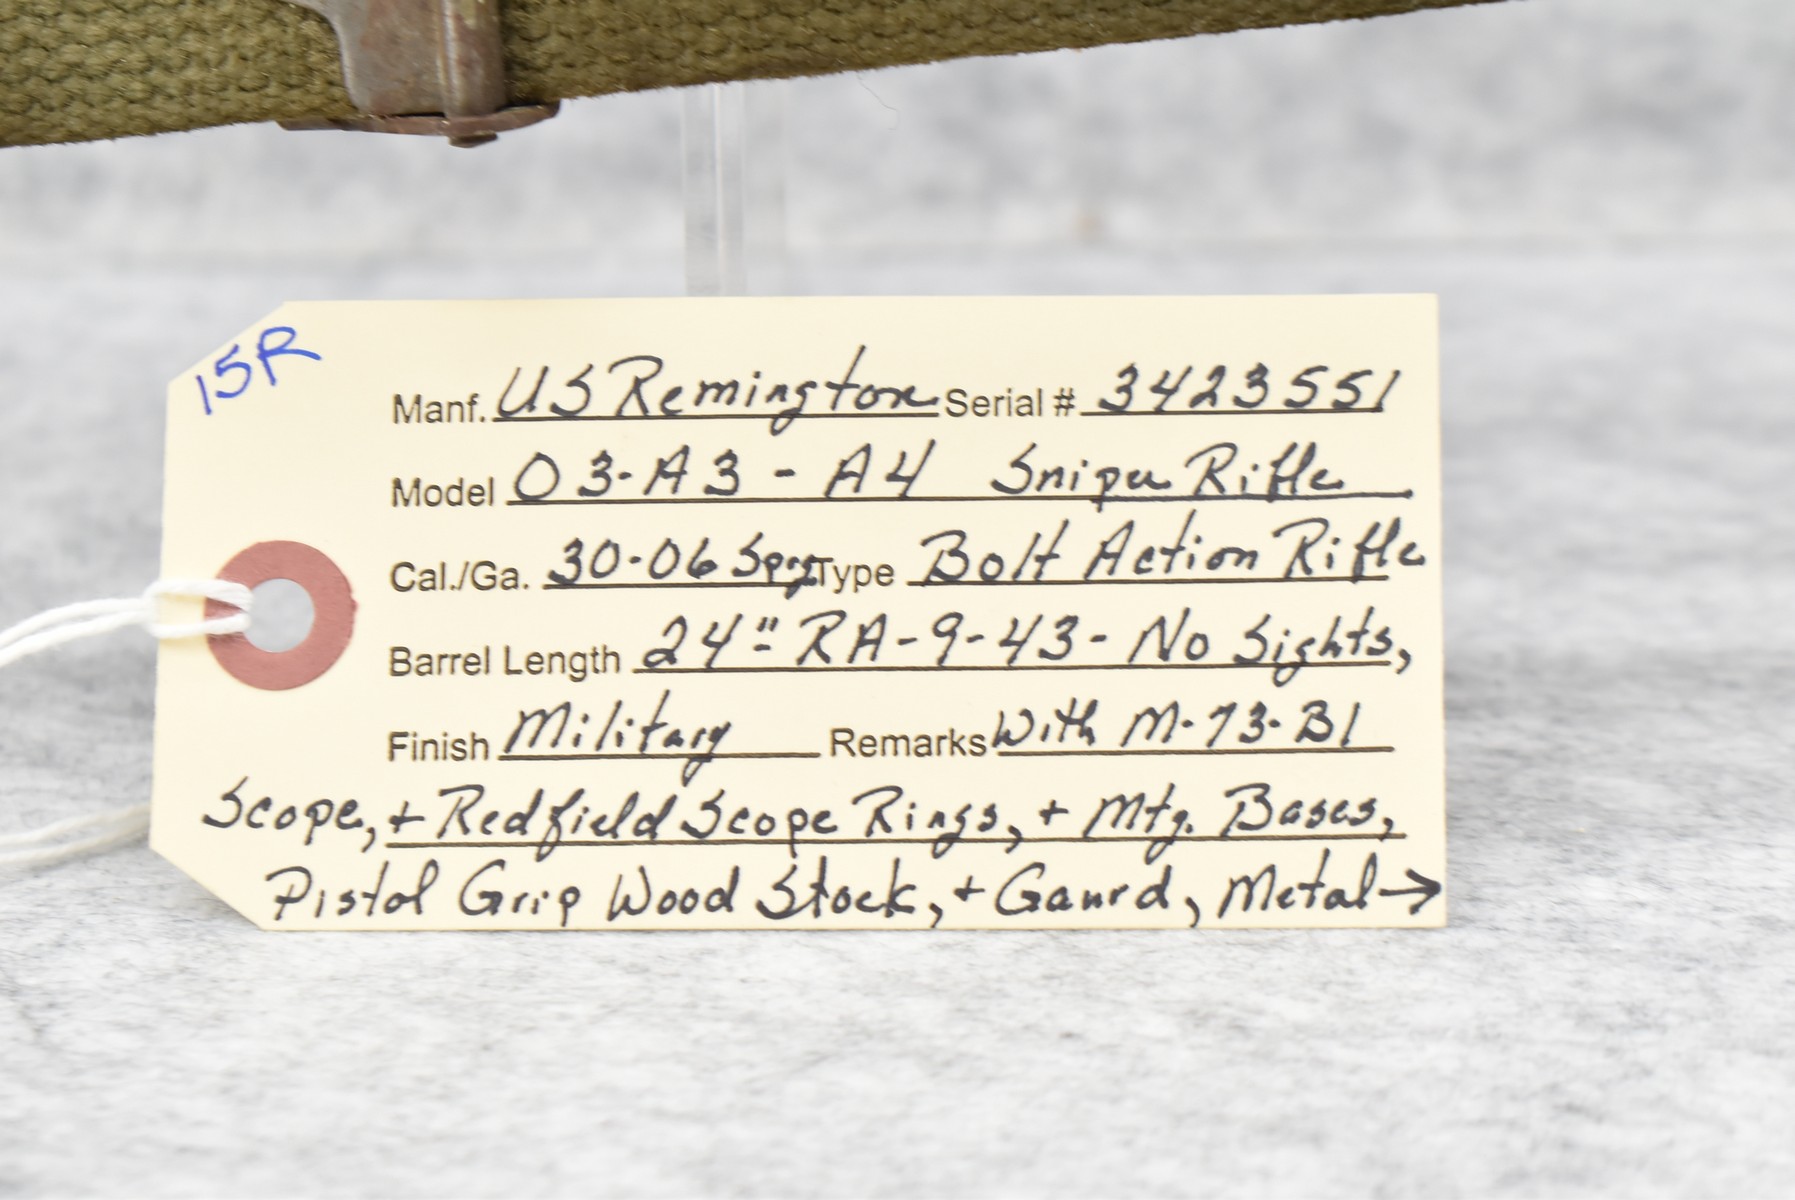 15R
Manf. US Remington Serial # 3423551
Model 03-A3 - A4 Sniper Rifle
Cal./Ga. 30-06 Sprg Type Bolt Action Rifle
Barrel Length 24" - RA-9-43- No Sights,
Finish Military Remarks With M-73-B1
Scope, + Redfield Scope Rings, + Mtg. Bases,
Pistol Grip Wood Stock, + Gaurd, Metal →